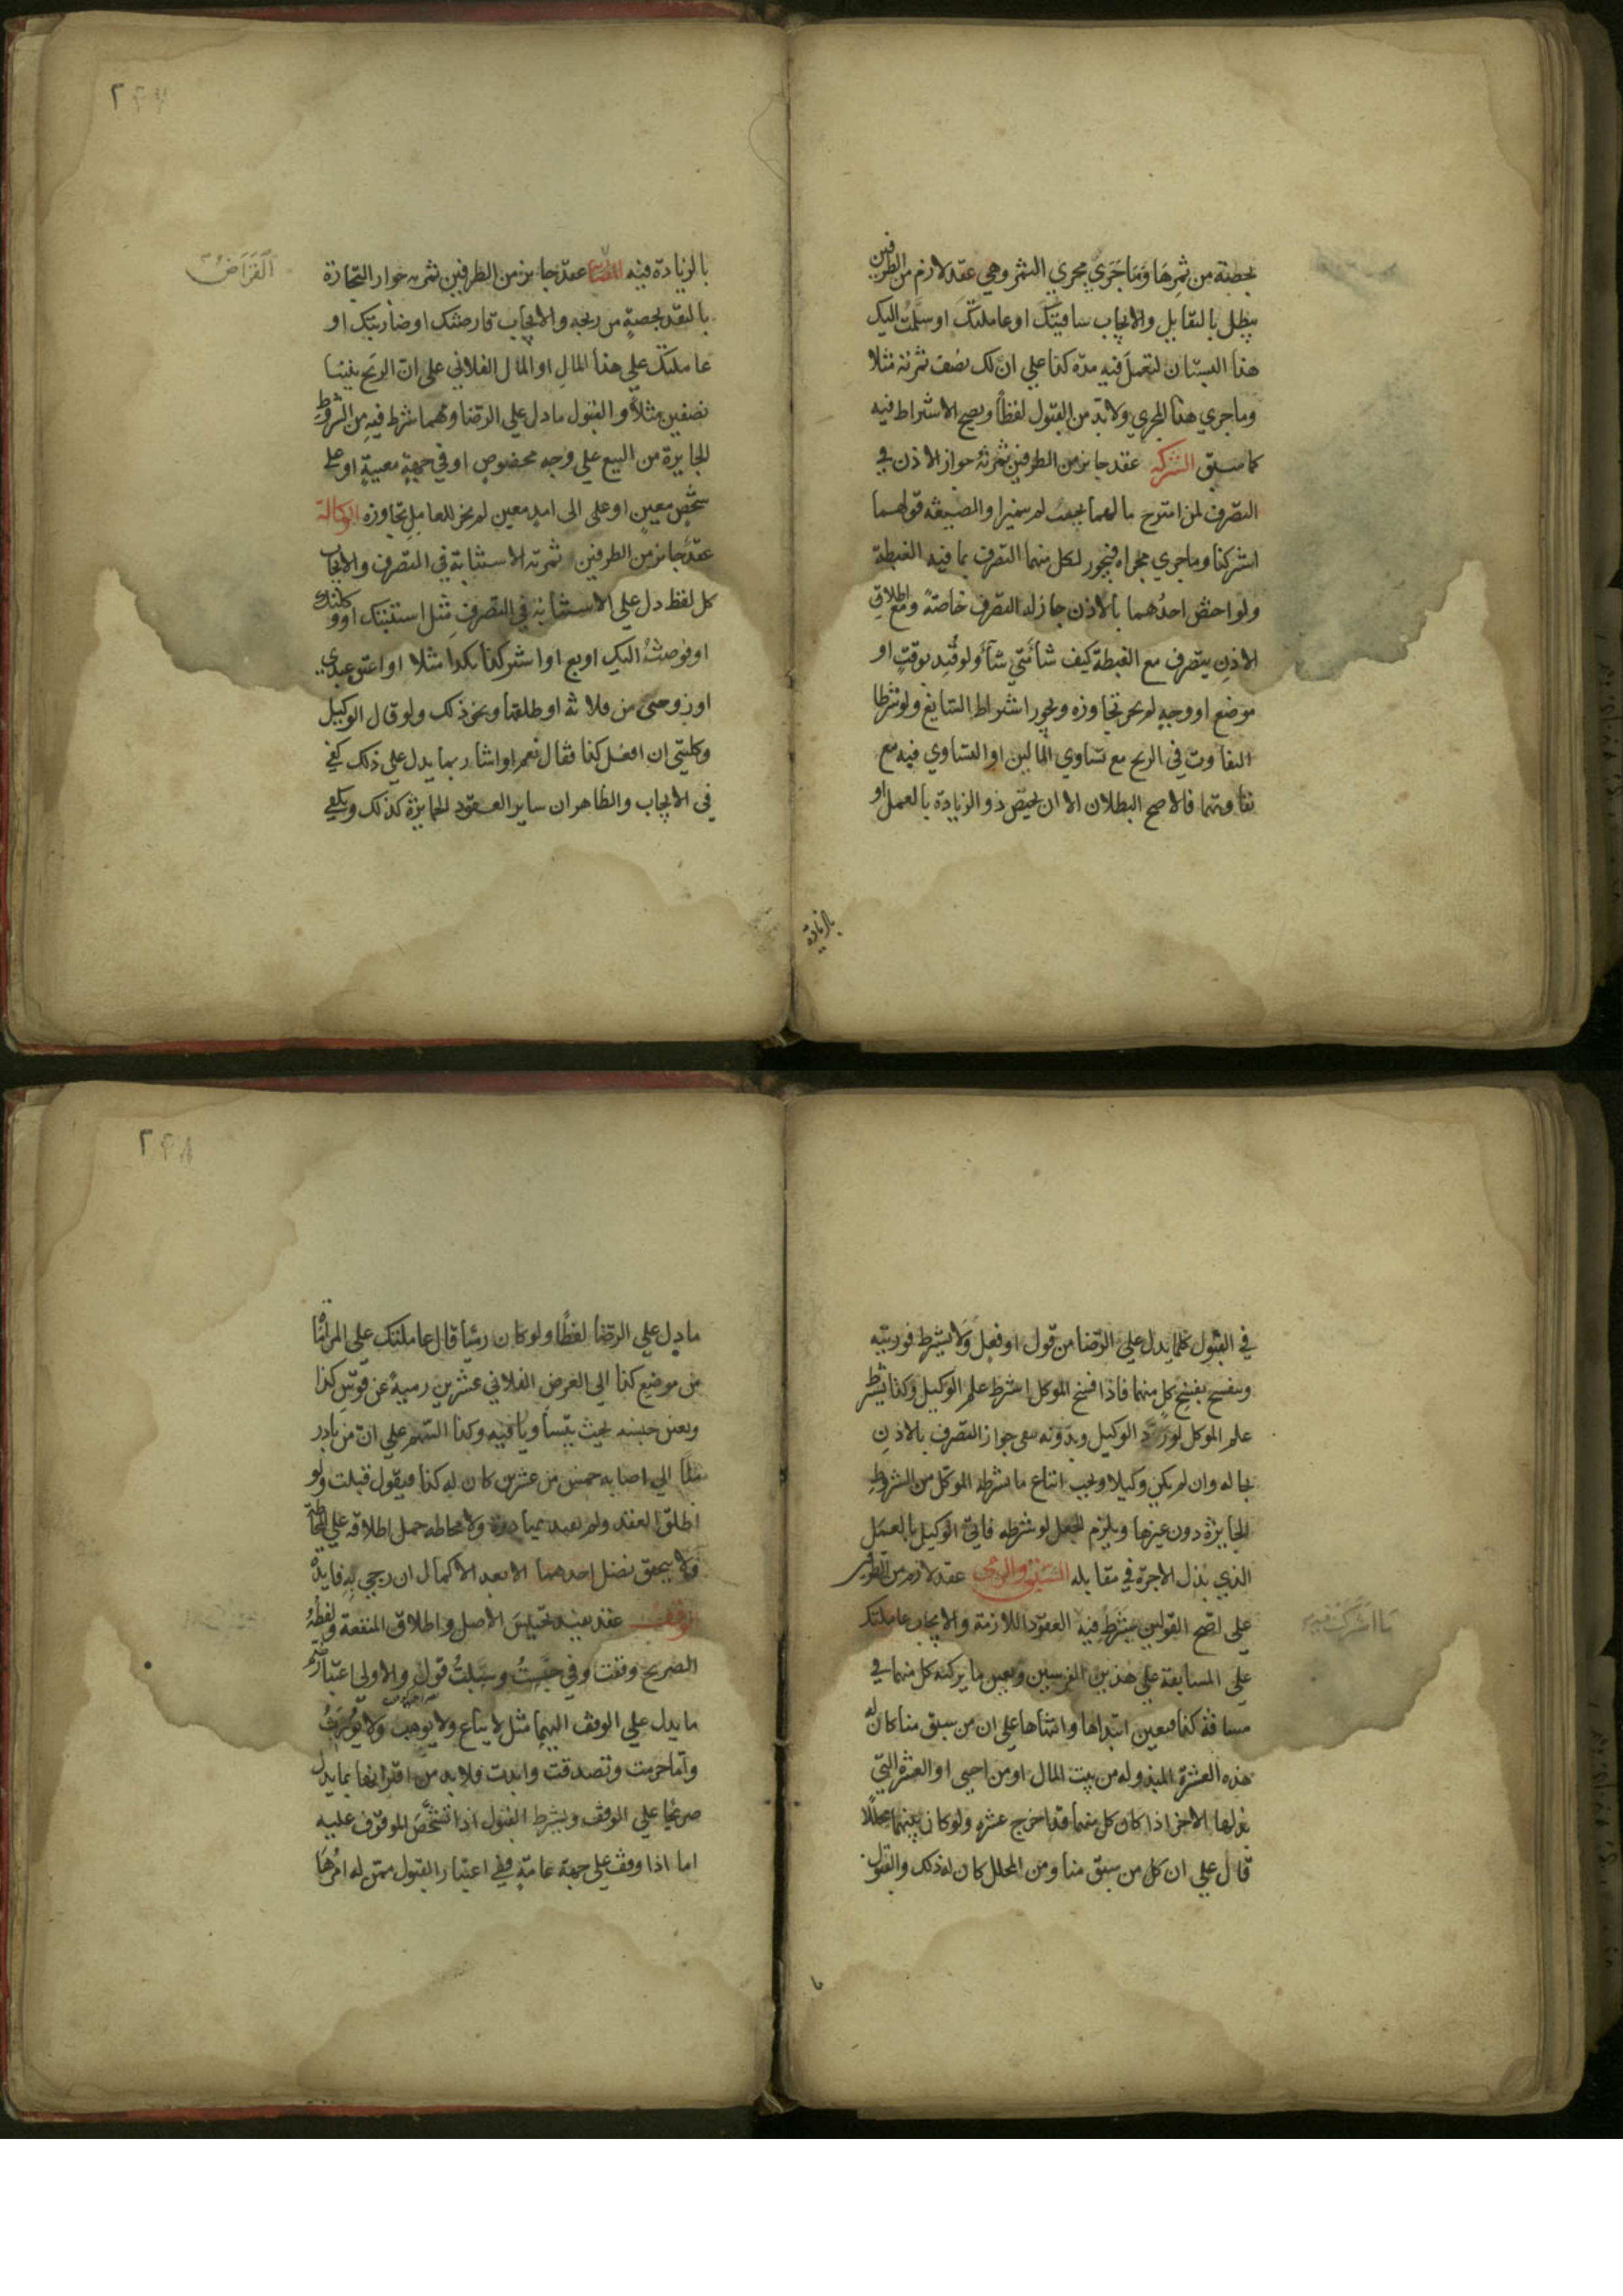 بحصة من ثمرها وما جري مجري الثمر وهي عقد لازم من الطرفين
يبطل بالتقايل والايجاب ساقيتك او عاملتك او سلمت اليك
هذا البستان لتعمل فيه مدة كذا علي ان لك نصف ثمرته مثلا
وما جري هذا المجري ولا بد من القبول لفظا ويصح الاشتراط فيه
كما سبق الشركه عقد جايز من الطرفين ثمرته جواز الاذن في
التصرف لمن امتزج مالهما بحيث لم يتميزا والصيغه قولهما
اشتركنا وما جري مجراه فيجوز لكل منهما التصرف بما فيه الغبطة
ولو اختص احدهما بالاذن جاز له التصرف خاصة ومع اطلاق
الاذن يتصرف مع الغبطة كيف شاء متي شاء ولو قيد بوقت او
موضع او وجه لم يجز تجاوزه ويجوز اشتراط السايغ ولو شرطا
التفاوت في الربح مع تساوي المالين او التساوي فيه مع
تفاوتهما فالاصح البطلان الا ان يختص ذو الزيادة بالعمل او
بالزيادة
٢٤٧
القراض
بالزيادة فيه عقد جايز من الطرفين ثمرته جواز التجارة
بالنقد بحصة من ربحه والايجاب قارضتك او ضاربتك او
عاملتك علي هذا المال او المال الفلاني علي ان الربح بيننا
نصفين مثلا والقبول ما دل علي الرضا ومهما شرط فيه من الشروط
الجايزة من البيع علي وجه مخصوص او في جهة معينة او علي
شخص معين او علي الى امد معين لم يجز للعامل تجاوزه الوكالة
عقد جايز من الطرفين ثمرته الاستنابة في التصرف والايجاب
كل لفظ دل علي الاستنابه في التصرف مثل استنبتك او وكلتك
او فوضت اليك او بع او اشتر كذا بكذا مثلا او اعتق عبدي
او زوجني من فلانة او طلقها ونحو ذلك ولو قال الوكيل
وكلتني ان افعل كذا فقال نعم او اشار بما يدل علي ذلك كفي
في الايجاب والظاهر ان ساير العقود الجايزة كذلك ويكفي
في القبول كلما يدل علي الرضا من قول او فعل ولا يشترط فوريته
وينفسخ بفسخ كل منهما فاذا فسخ الموكل اشترط علم الوكيل وكذا يشترط
علم الموكل لو رد الوكيل وبدونه يبقى جواز التصرف بالاذن
بحاله وان لم يكن وكيلا ويجب اتباع ما شرطه الموكل من الشروط
الجايزة دون غيرها ويلزم الجعل لو شرطه فاتى الوكيل بالعمل
الذي بذل الاجرة في مقابله السبق والرمي عقد لازم من الطرفين
على اصح القولين يشترط فيه العقود اللازمة والايجاب عاملتك
علي المسابقة علي هذين الفرسين ويعين ما يركبه كل منهما في
مسافة كذا فيعين ابتداها وانتهاها علي ان من سبق منا كان له
هذه العشرة المبذوله من بيت المال او من اجنبي او العشرة التي
بذلها الاخر اذا كان كل منهما قد اخرج عشره ولو كان بينهما محللا
قال علي ان كل من سبق منا ومن المحلل كان له ذلك والقبول
ما
٢٤٨
ما يدل علي الرضا لفظا ولو كان رميا قال عاملتك علي المراماة
من موضع كذا الي الغرض الفلاني عشرين رمية عن قوس كذا
ويعين جنسه بحيث يتساويا فيه وكذا السهم علي ان من بادر
منا الي اصابه خمس من عشرين كان له كذا فيقول قبلت ولو
اطلق العقد ولم يقيد بمبادرة ولا محاطه حمل اطلاقه علي المحاطة
ولا يتحقق نضل احدهما الا بعد الاكمال ان رجي به فايدة
الوقف عقد يفيد تحبيس الاصل واطلاق المنفعة ولفظه
الصريح وقفت وفي حبست وسبلت قول والاولي اعتبار ضم
ما يدل علي الوقف اليهما مثل لا يباع ولا يوهب ولا يورث
واما حرمت وتصدقت وابدت فلا بد من اقترانها بما يدل
صريحا علي الوقف ويشترط القبول اذا تشخص الموقوف عليه
اما اذا وقف علي جهة عامة ففي اعتبار القبول ممن له امرها